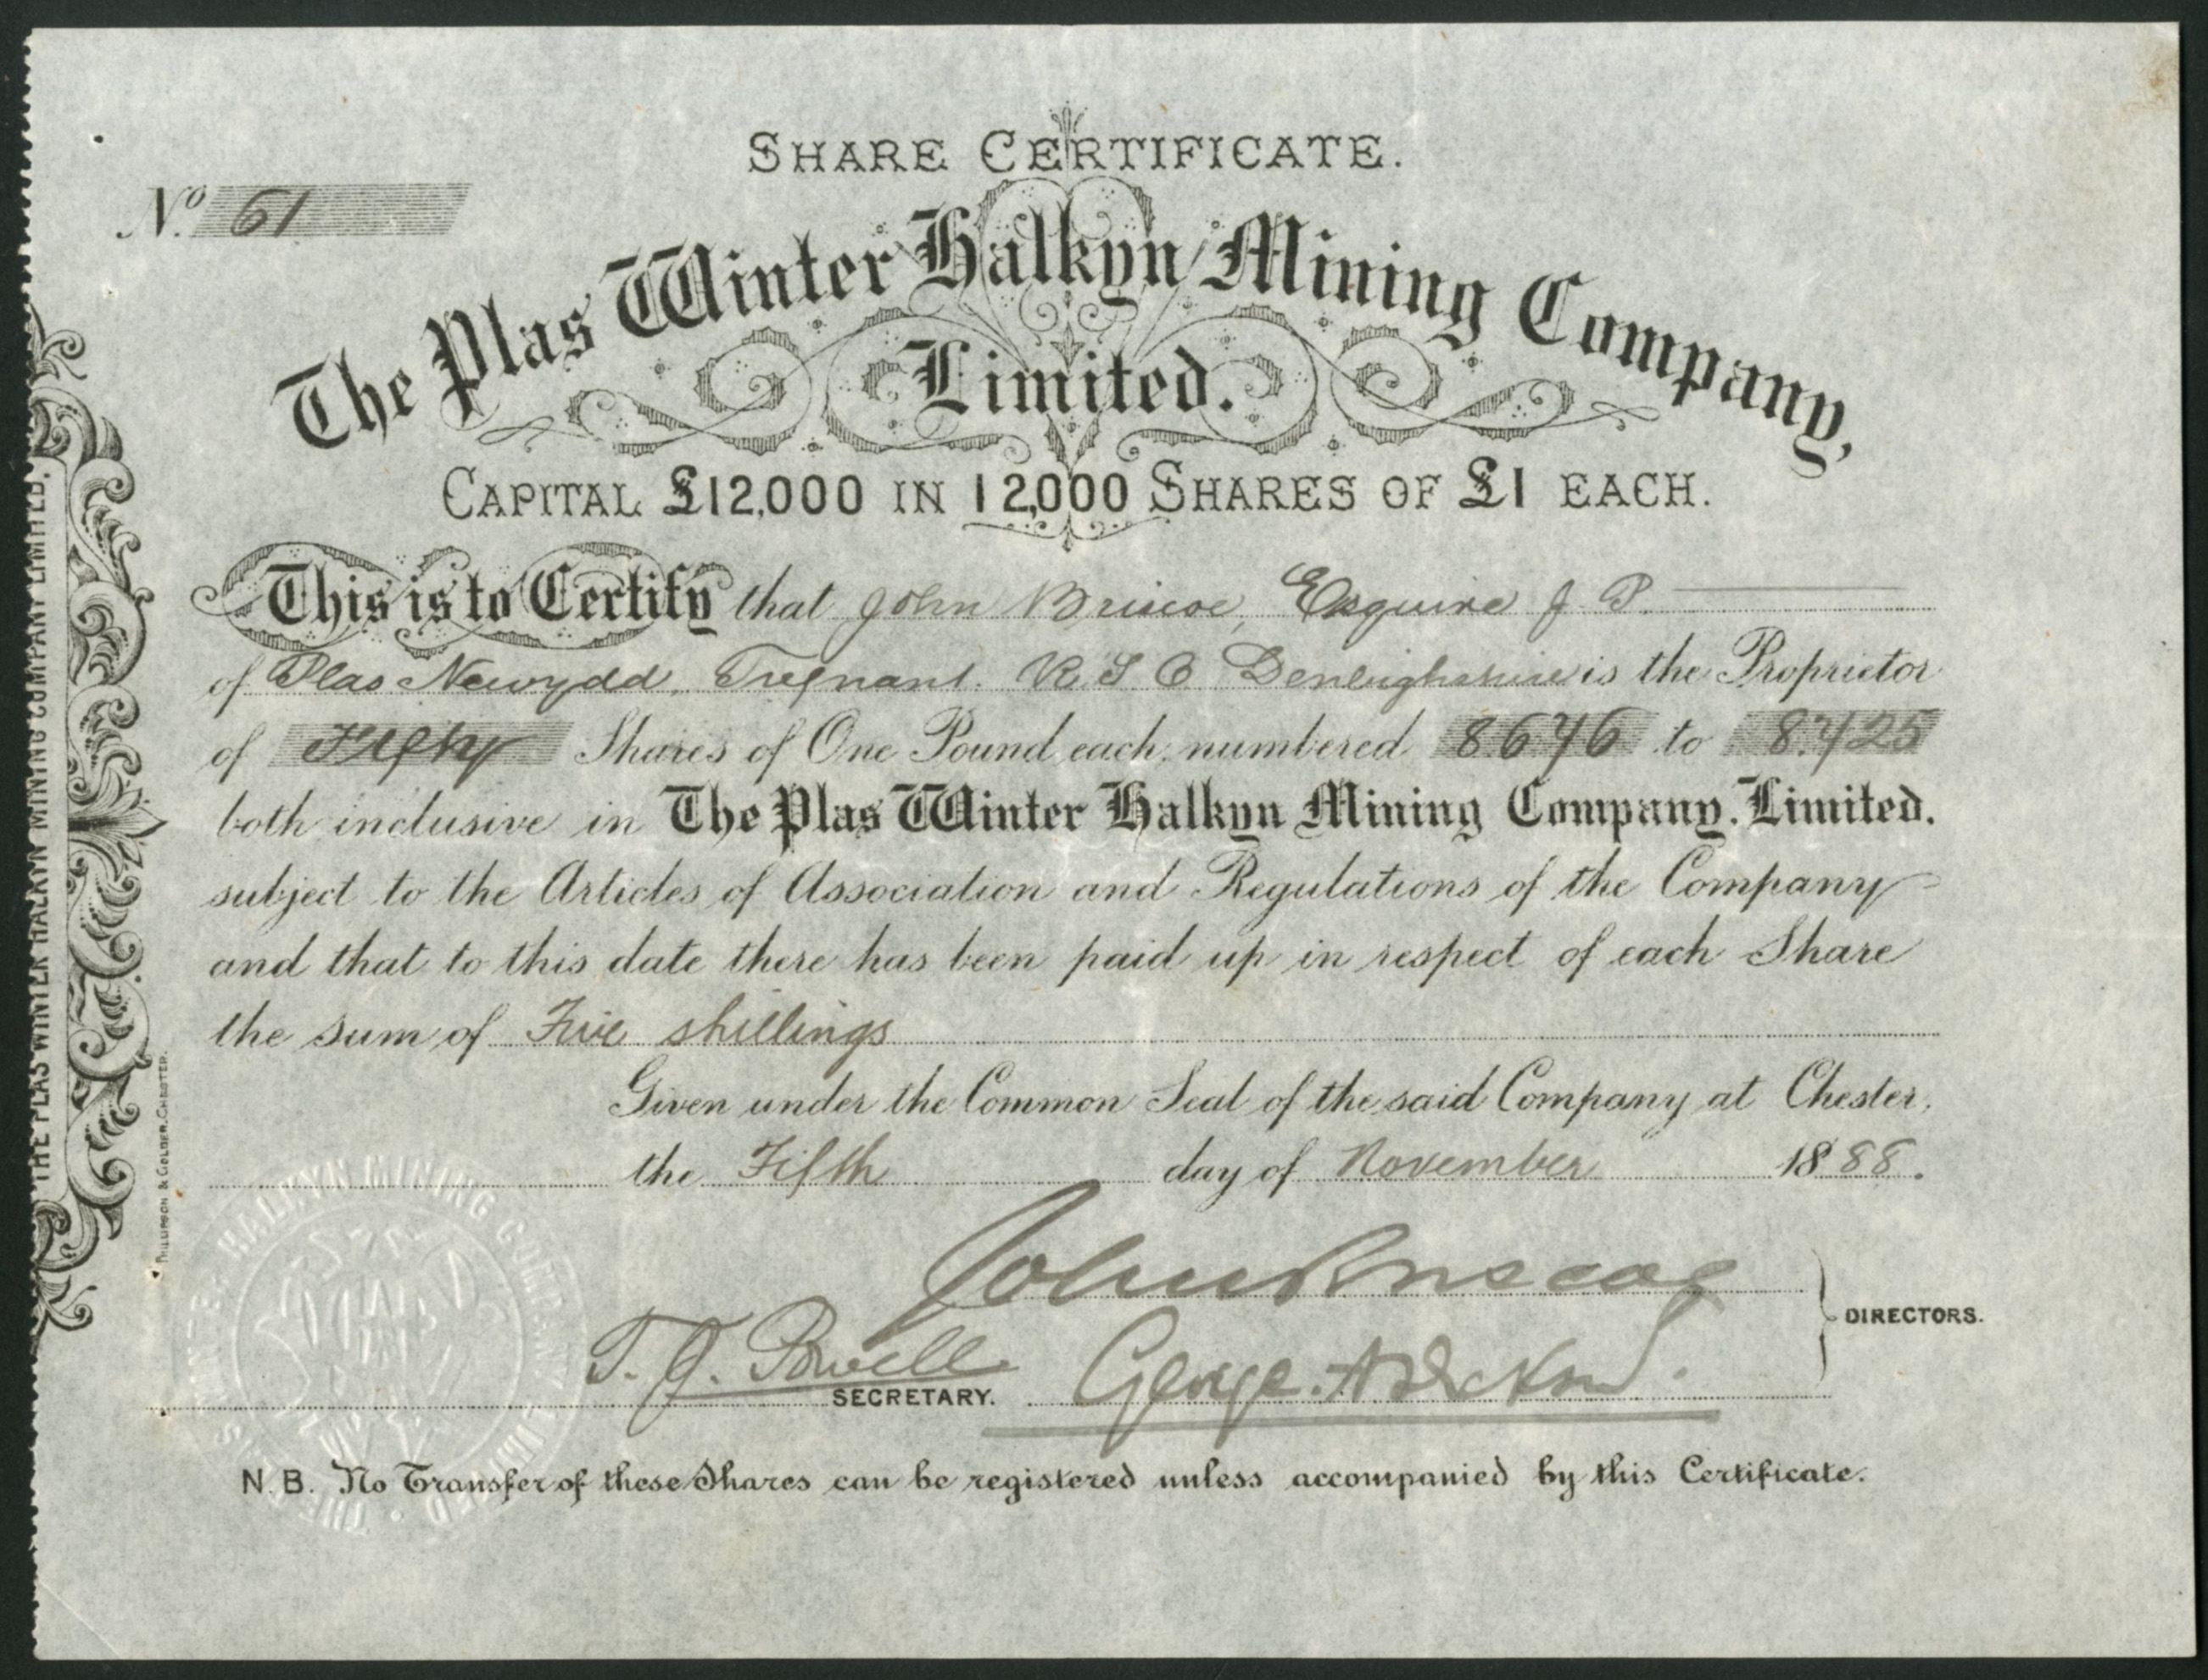 SHARE CERTIFICATE.
No. 61
The Plas Winter Halkyn Mining Company,
Limited.
CAPITAL £12,000 IN 12,000 SHARES OF £1 EACH.
This is to Certify that John Briscoe, Esquire J. P.
of Plas Newydd, Trefnant. R. S. O Denbighshire is the Proprietor
of Fifty Shares of One Pound each, numbered 8676 to 8725
both inclusive in The Plas Winter Halkyn Mining Company, Limited.
subject to the Articles of Association and Regulations of the Company
and that to this date there has been paid up in respect of each Share
the sum of Five shillings
Given under the Common Seal of the said Company at Chester,
the Fifth day of November 1888.
John Briscoe
DIRECTORS.
T. J. Powell
SECRETARY.
George.
N.B. No Transfer of these Shares can be registered unless accompanied by this Certificate.
THE PLAS WINTER HALKYN MINING COMPANY LIMITED.
PHILLIPSON & GOLDER, CHESTER.
THE PLAS WINTER HALKYN MINING COMPANY LIMITED